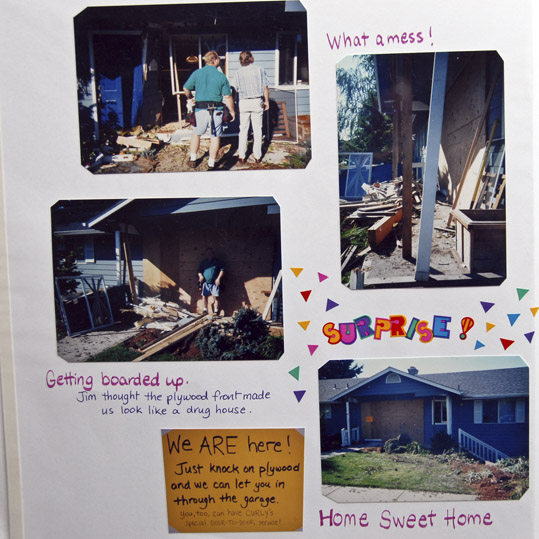 What a mess!
SURPRISE!
Getting boarded up.
Jim thought the plywood front made
us look like a drug house.
We ARE here!
Just knock on plywood
and we can let you in
through the garage.
You, too, can have CURLY's
special door-to-door service!
Home Sweet Home